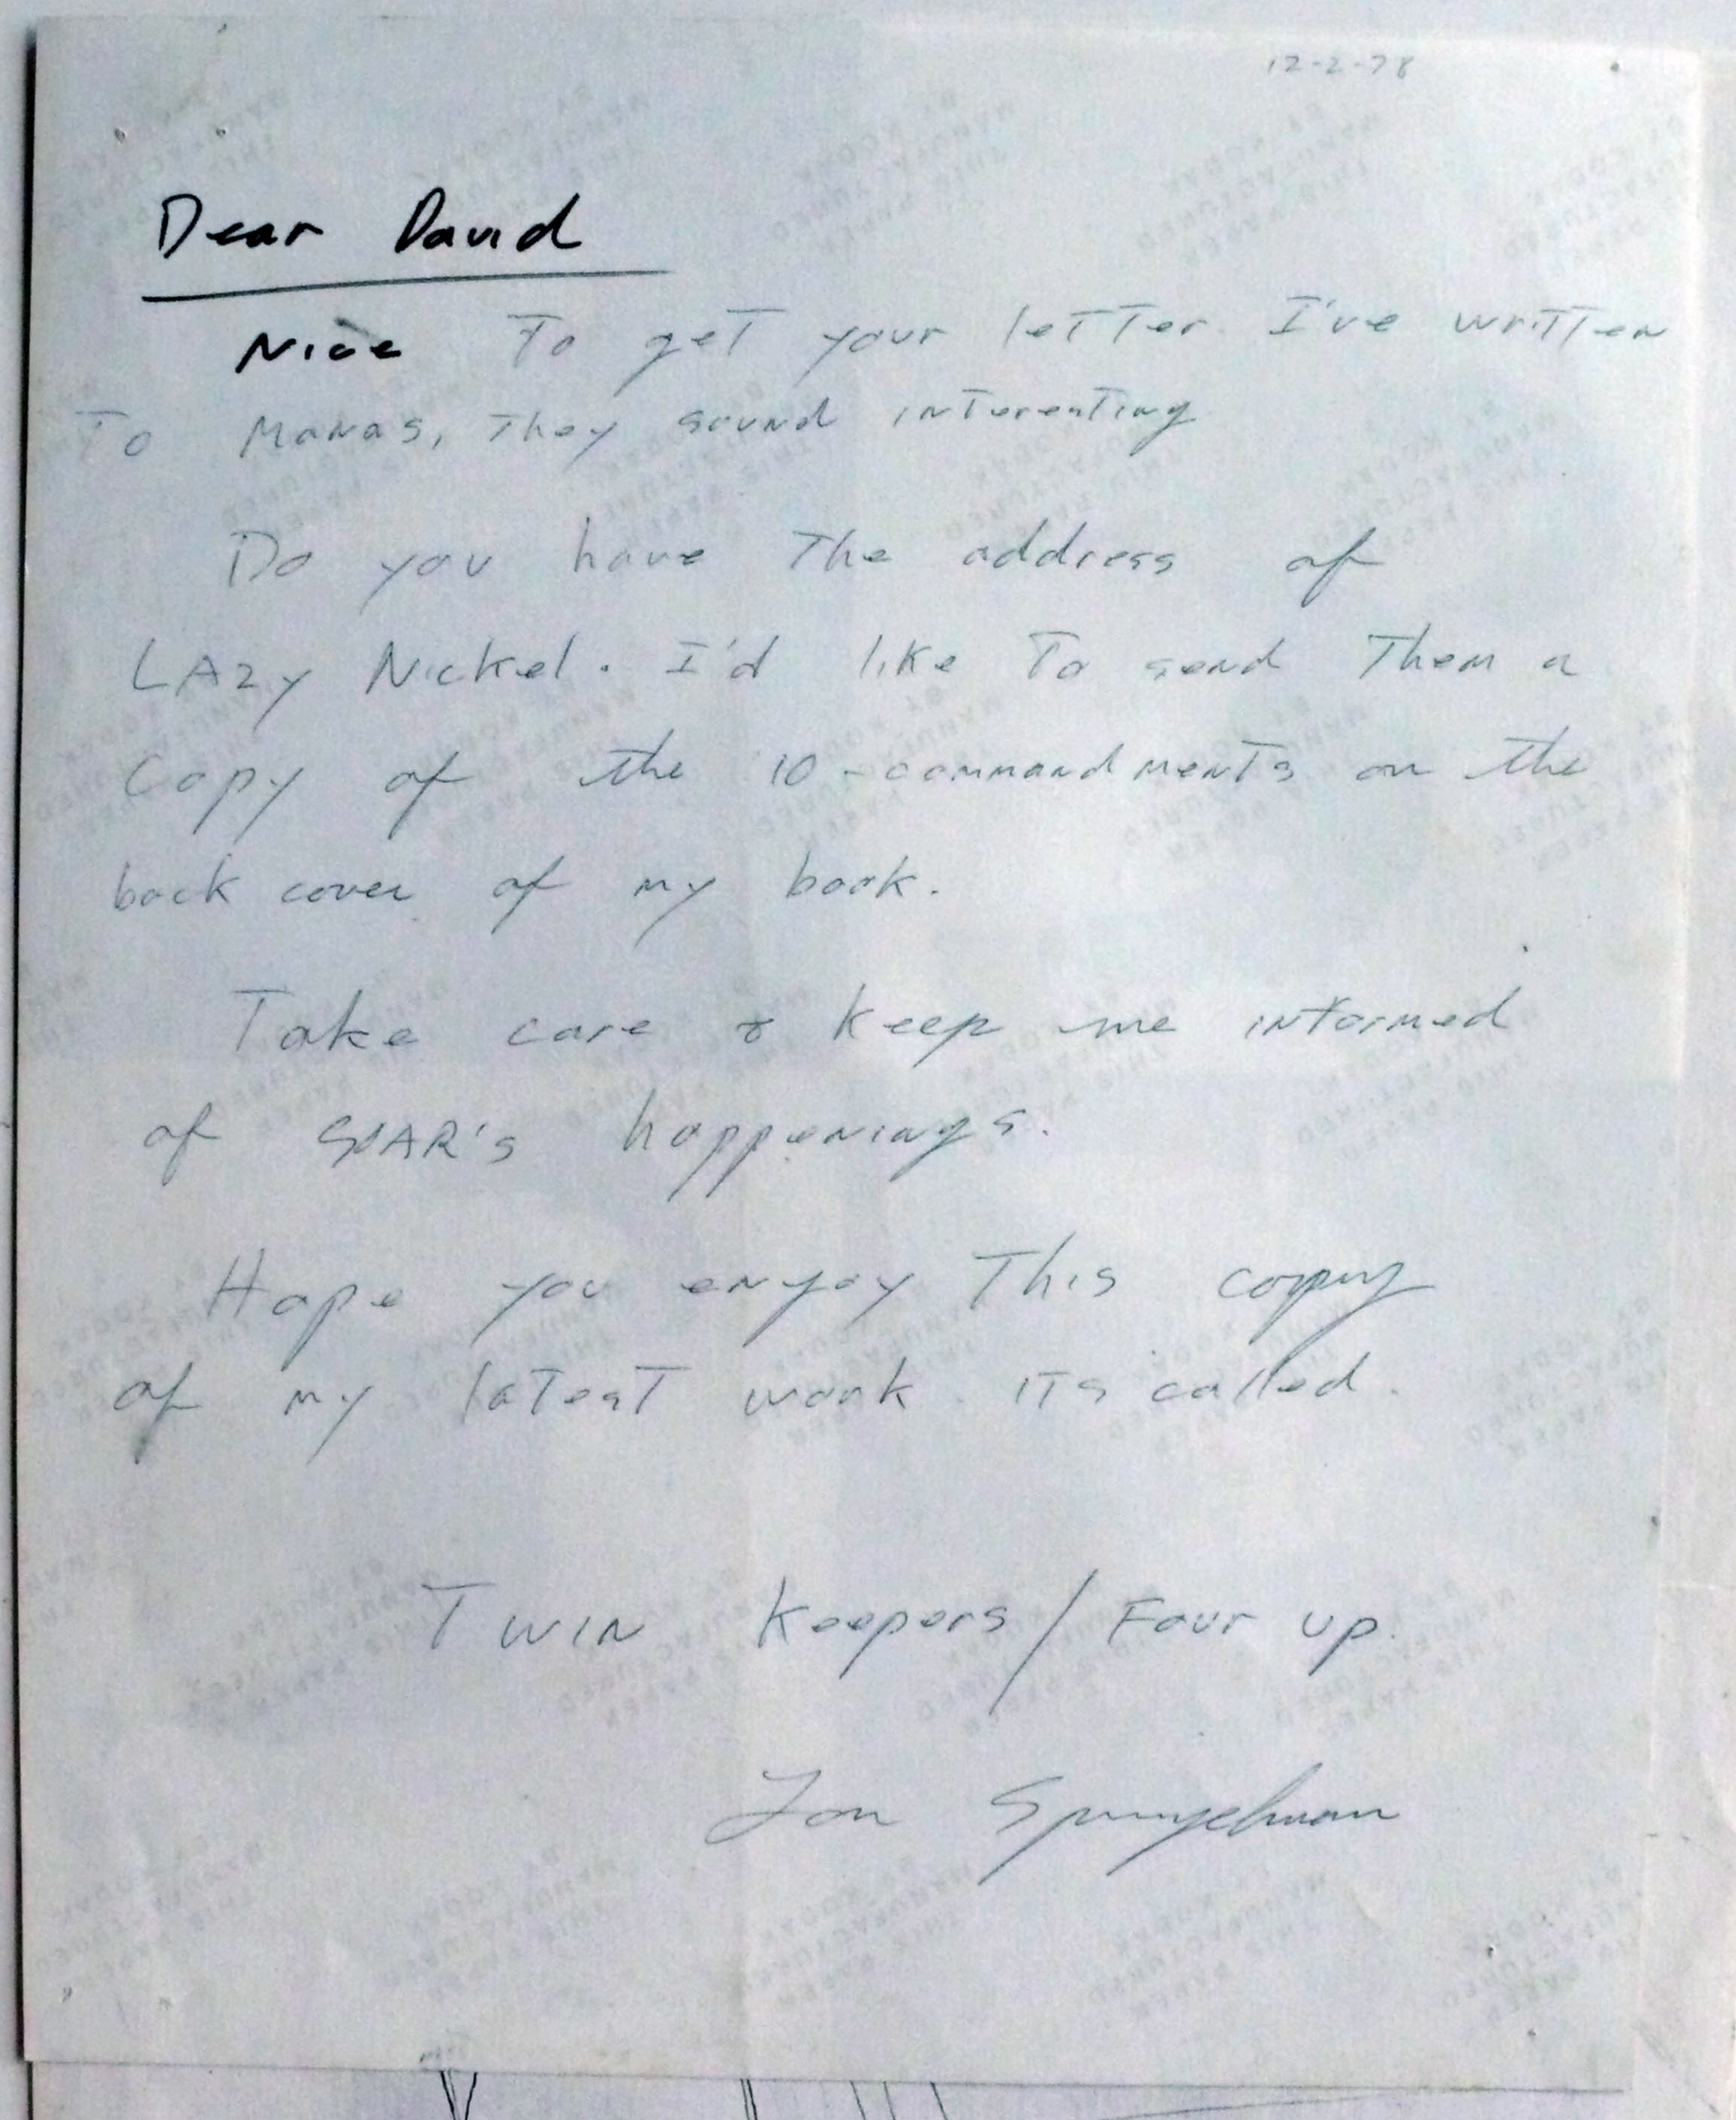 12-2-78
Dear David
Nice To get your letter. I've written
To Manas, They sound interesting
Do you have The address of
LAzy Nickel. I'd like To send Them a
Copy of the 10-commandments on the
back cover of my book.
Take care & keep me informed
of 's happenings.
Hope you enjoy This copy
of my latest work. ITs called.
TWIN Keepers / Four up.
Jon
THIS PAPER
MANUFACTURED
BY KODAK